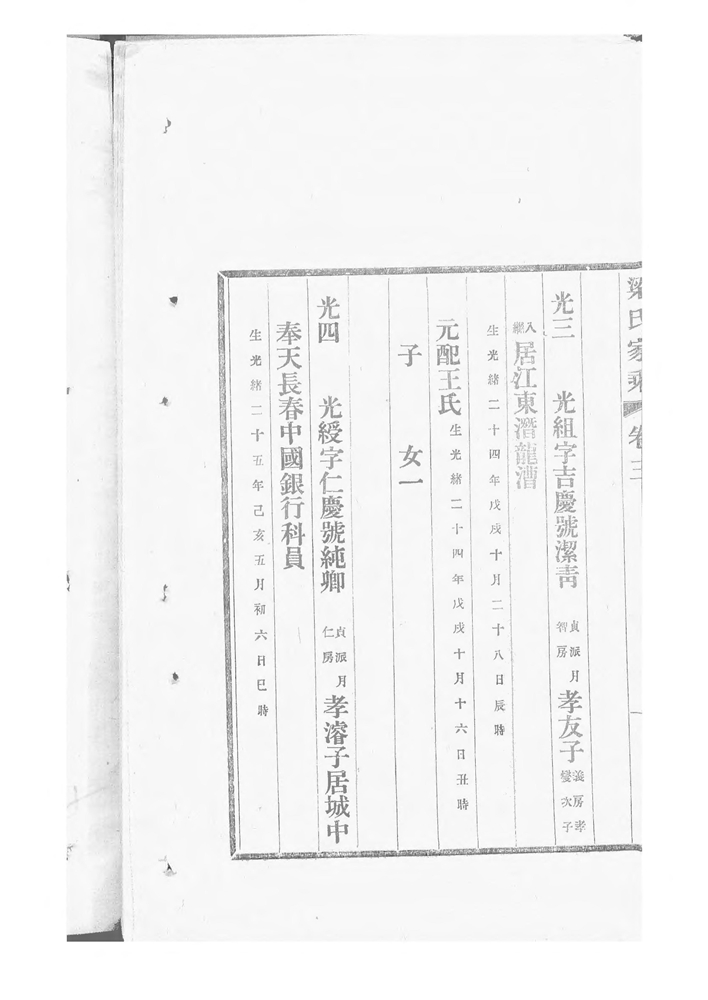 梁氏家乘 卷三 一
光三 光組字吉慶號潔靑 貞派月智房 孝友子 義房孝燮次子
入繼 居江東潛龍漕
生光緒二十四年戊戌十月二十八日辰時
元配王氏 生光緒二十四年戊戌十月十六日丑時
子 女一
光四 光綬字仁慶號純卿 貞派月仁房 孝濬子居城中
奉天長春中國銀行科員
生光緒二十五年己亥五月初六日巳時